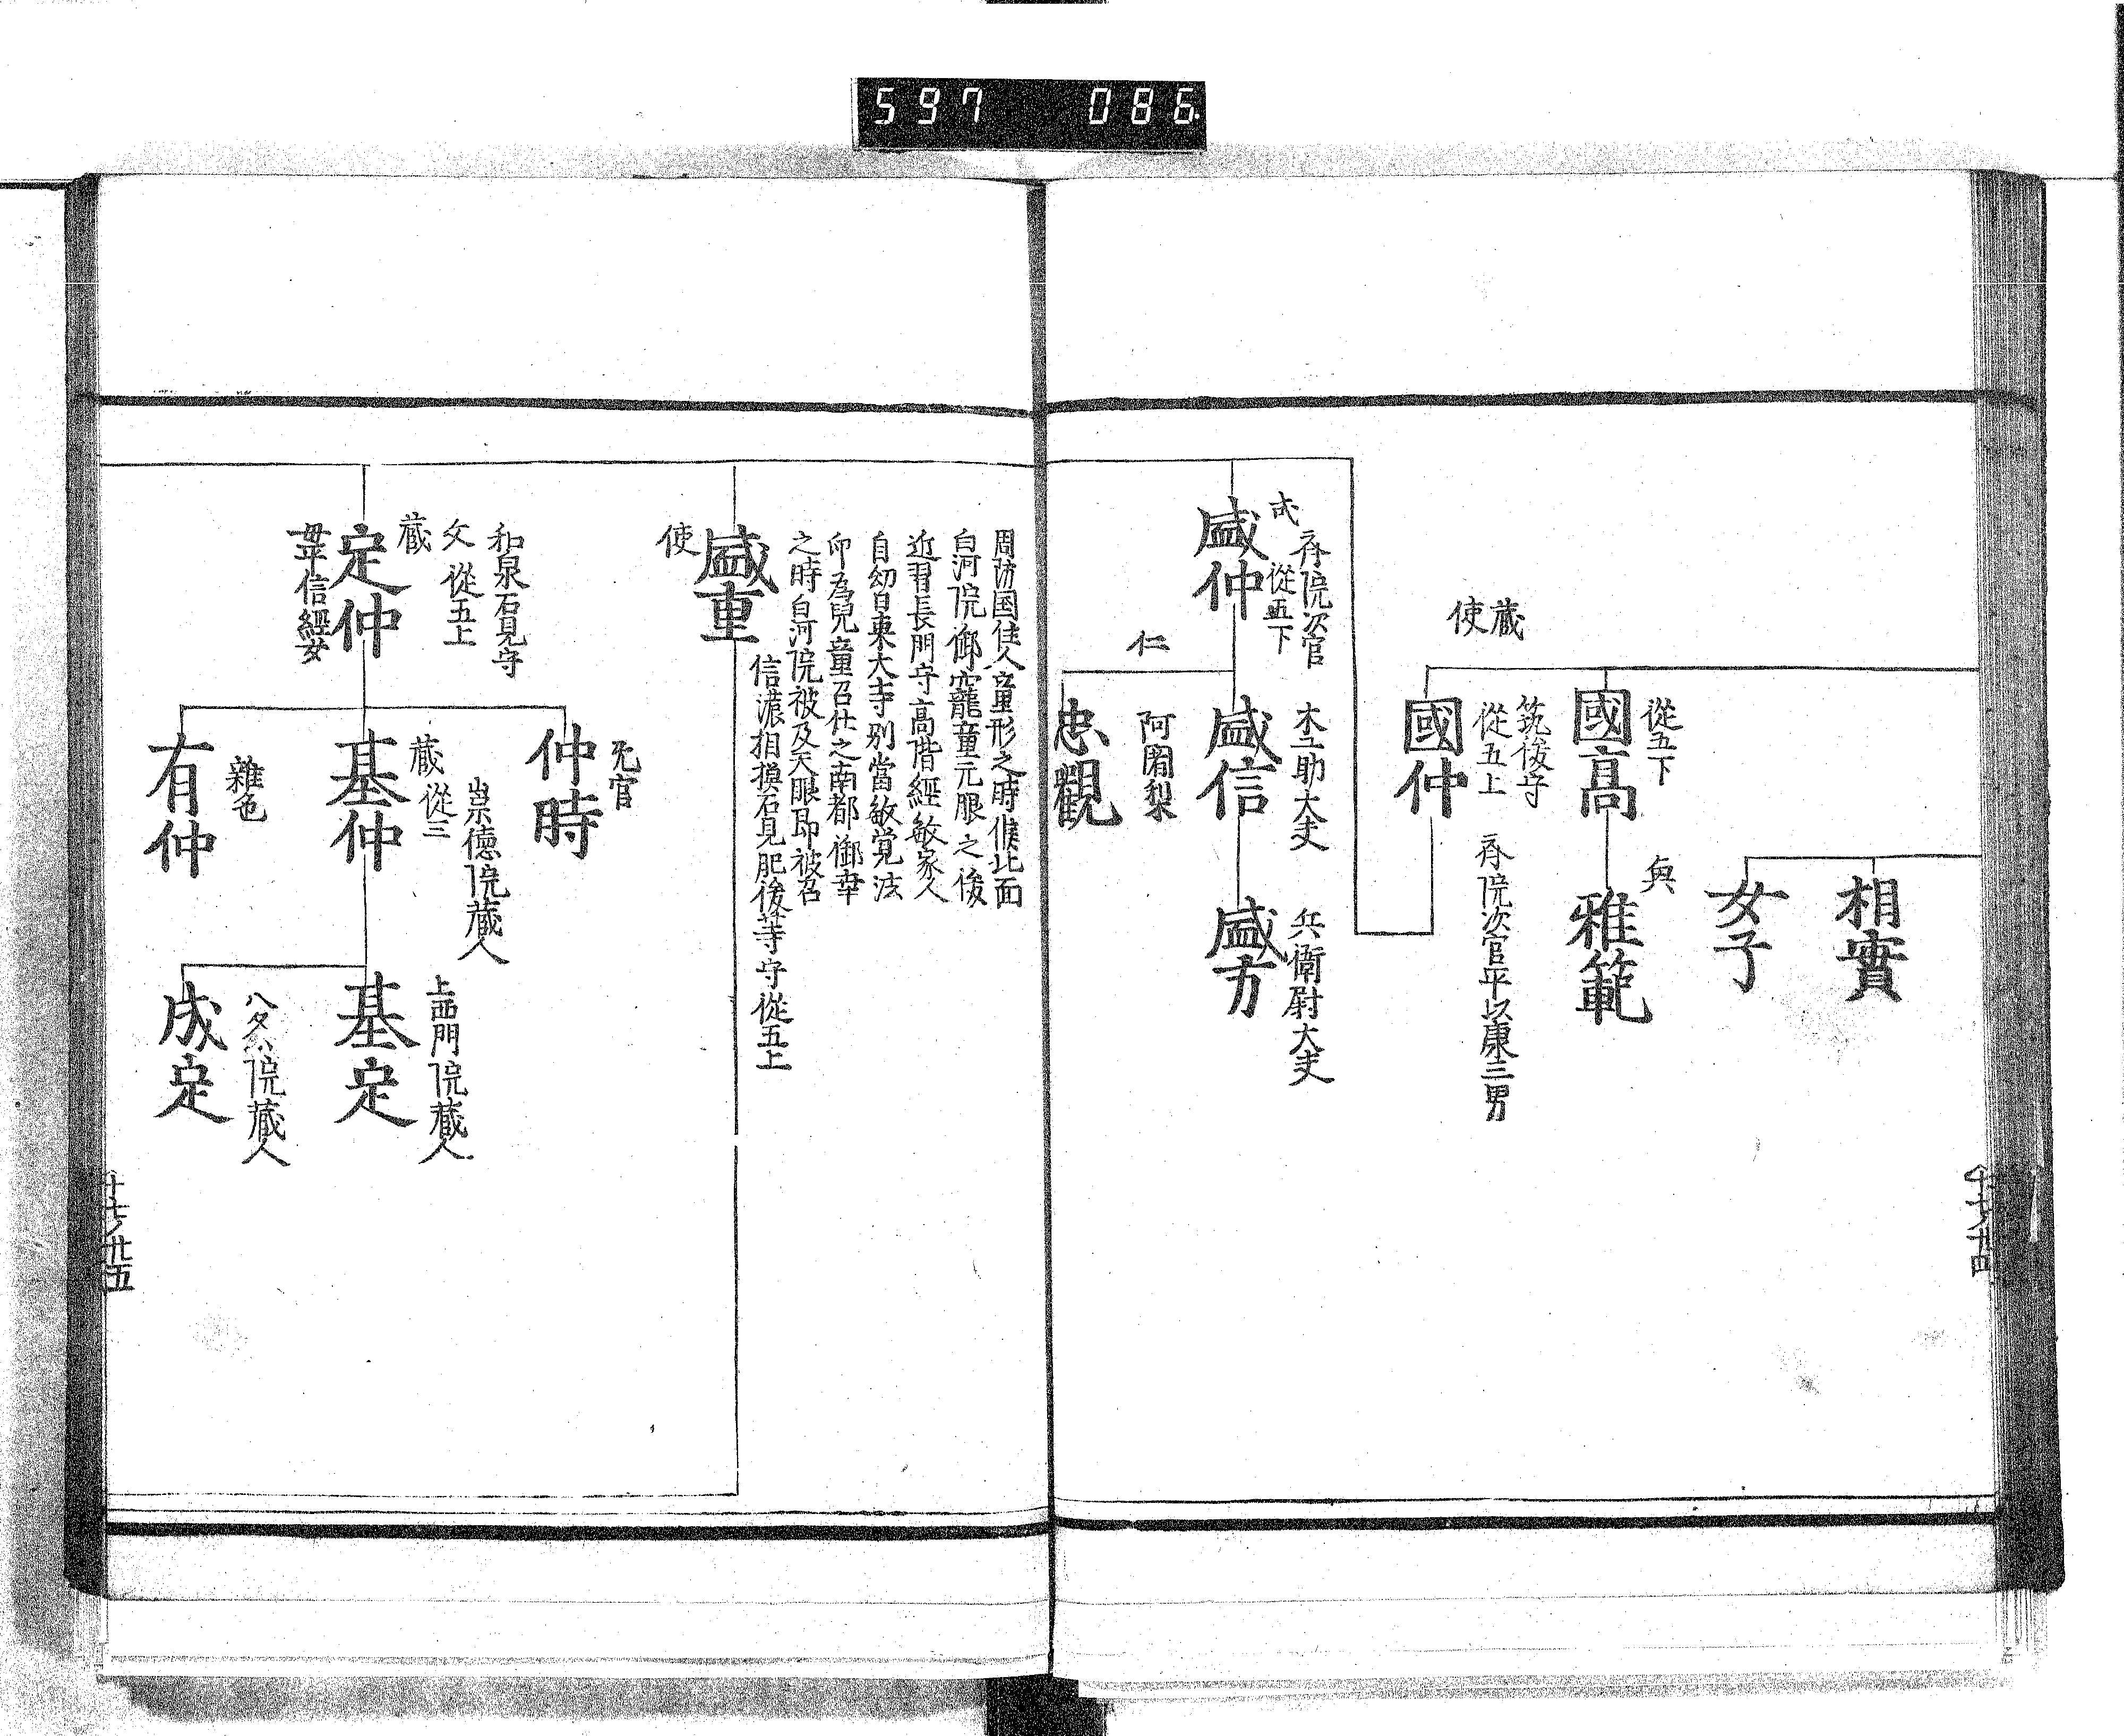 597 086
相實
女子
從五下
國高
兵
雅範
蔵
使
筑後守
從五上
國仲
斎院次官平以康三男
斎院次官
從五下
盛仲
木工助大夫
盛信
兵衛尉大夫
盛方
仁
阿闍梨
忠觀
十七ノ廿四
周防国住人童形之時候北面
白河院御寵童元服之後
近習長門守高階經敏家人
自幼日東大寺別當敏覚法
印為兒童召仕之南都御幸
之時白河院被及天眼即被召
信濃相摸石見肥後等守從五上
盛重
使
和泉石見守
從五上
蔵
定仲
母平信經女
无官
仲時
崇徳院蔵人
蔵 從三
基仲
雜色
有仲
上西門院蔵人
基定
八条院蔵人
成定
十七ノ廿五